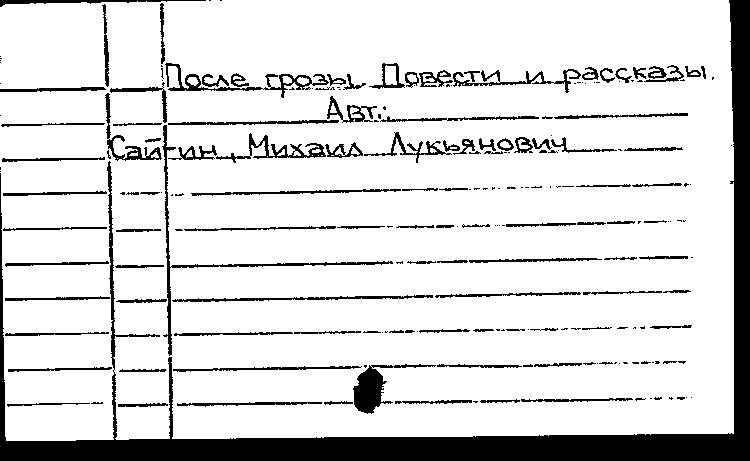 После грозы. Повести и рассказы.
Авт.:
Сайгин, Михаил Лукьянович